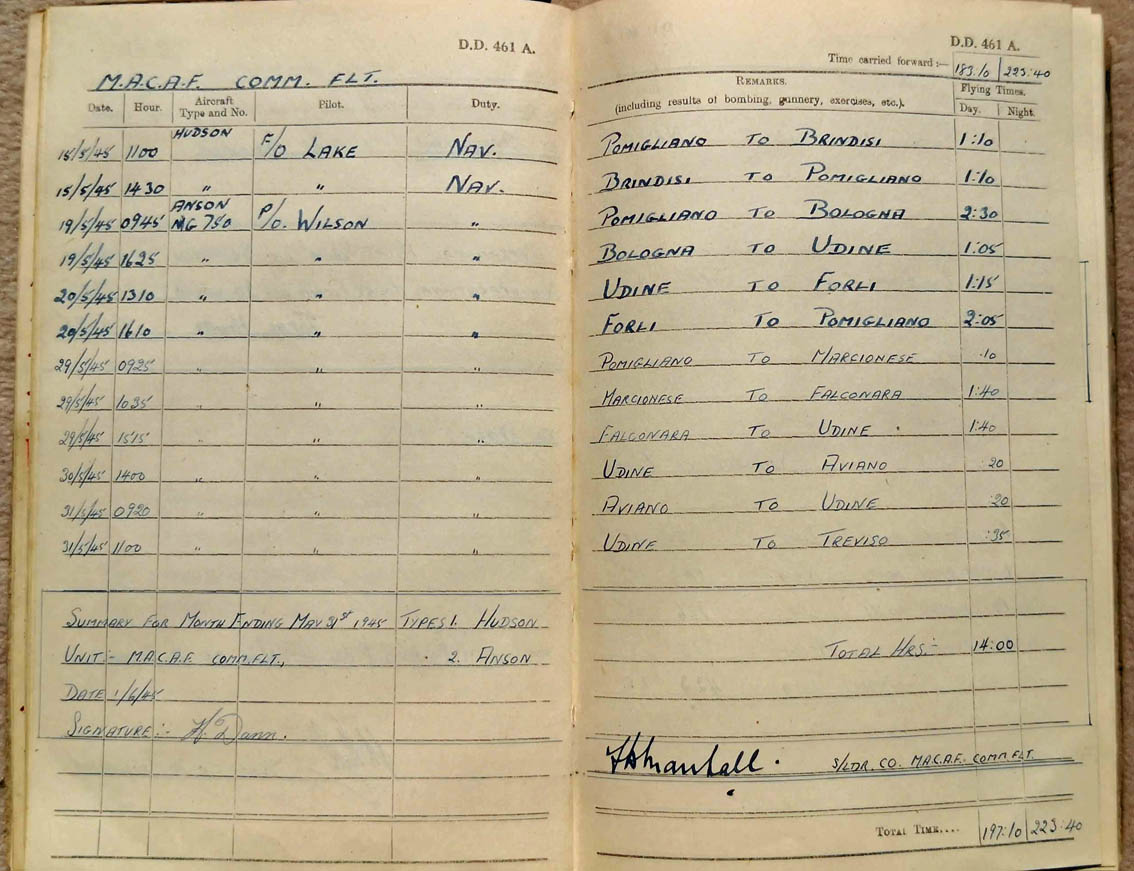 D.D. 461 A.
M.A.C.A.F. COMM. FLT.
Date. Hour. Aircraft Type and No. Pilot. Duty.
HUDSON
15/5/45 1100 F/O LAKE NAV.
15/5/45 1430 " " NAV.
ANSON
19/5/45 0945 NG 750 P/O. WILSON "
19/5/45 1625 " " "
20/5/45 1310 " " "
20/5/45 1610 " " "
29/5/45 0925 " " "
29/5/45 1035 " " "
29/5/45 1515 " " "
30/5/45 1400 " " "
31/5/45 0920 " " "
31/5/45 1100 " " "
SUMMARY FOR MONTH ENDING MAY 31st 1945 TYPES 1. HUDSON
UNIT:- M.A.C.A.F. COMM.FLT., 2. ANSON
DATE 1/6/45
SIGNATURE:- H. Dann.
D.D. 461 A.
Time carried forward:— 183:10 223:40
REMARKS. Flying Times.
(including results of bombing, gunnery, exercises, etc.). Day. Night.
POMIGLIANO TO BRINDISI 1:10
BRINDISI TO POMIGLIANO 1:10
POMIGLIANO TO BOLOGNA 2:30
BOLOGNA TO UDINE 1:05
UDINE TO FORLI 1:15
FORLI TO POMIGLIANO 2:05
POMIGLIANO TO MARCIONESE :10
MARCIONESE TO FALCONARA 1:40
FALCONARA TO UDINE 1:40
UDINE TO AVIANO :20
AVIANO TO UDINE :20
UDINE TO TREVISO :35
TOTAL HRS:- 14:00
S/LDR. CO. M.A.C.A.F. COMM FLT.
TOTAL TIME.... 197:10 223:40